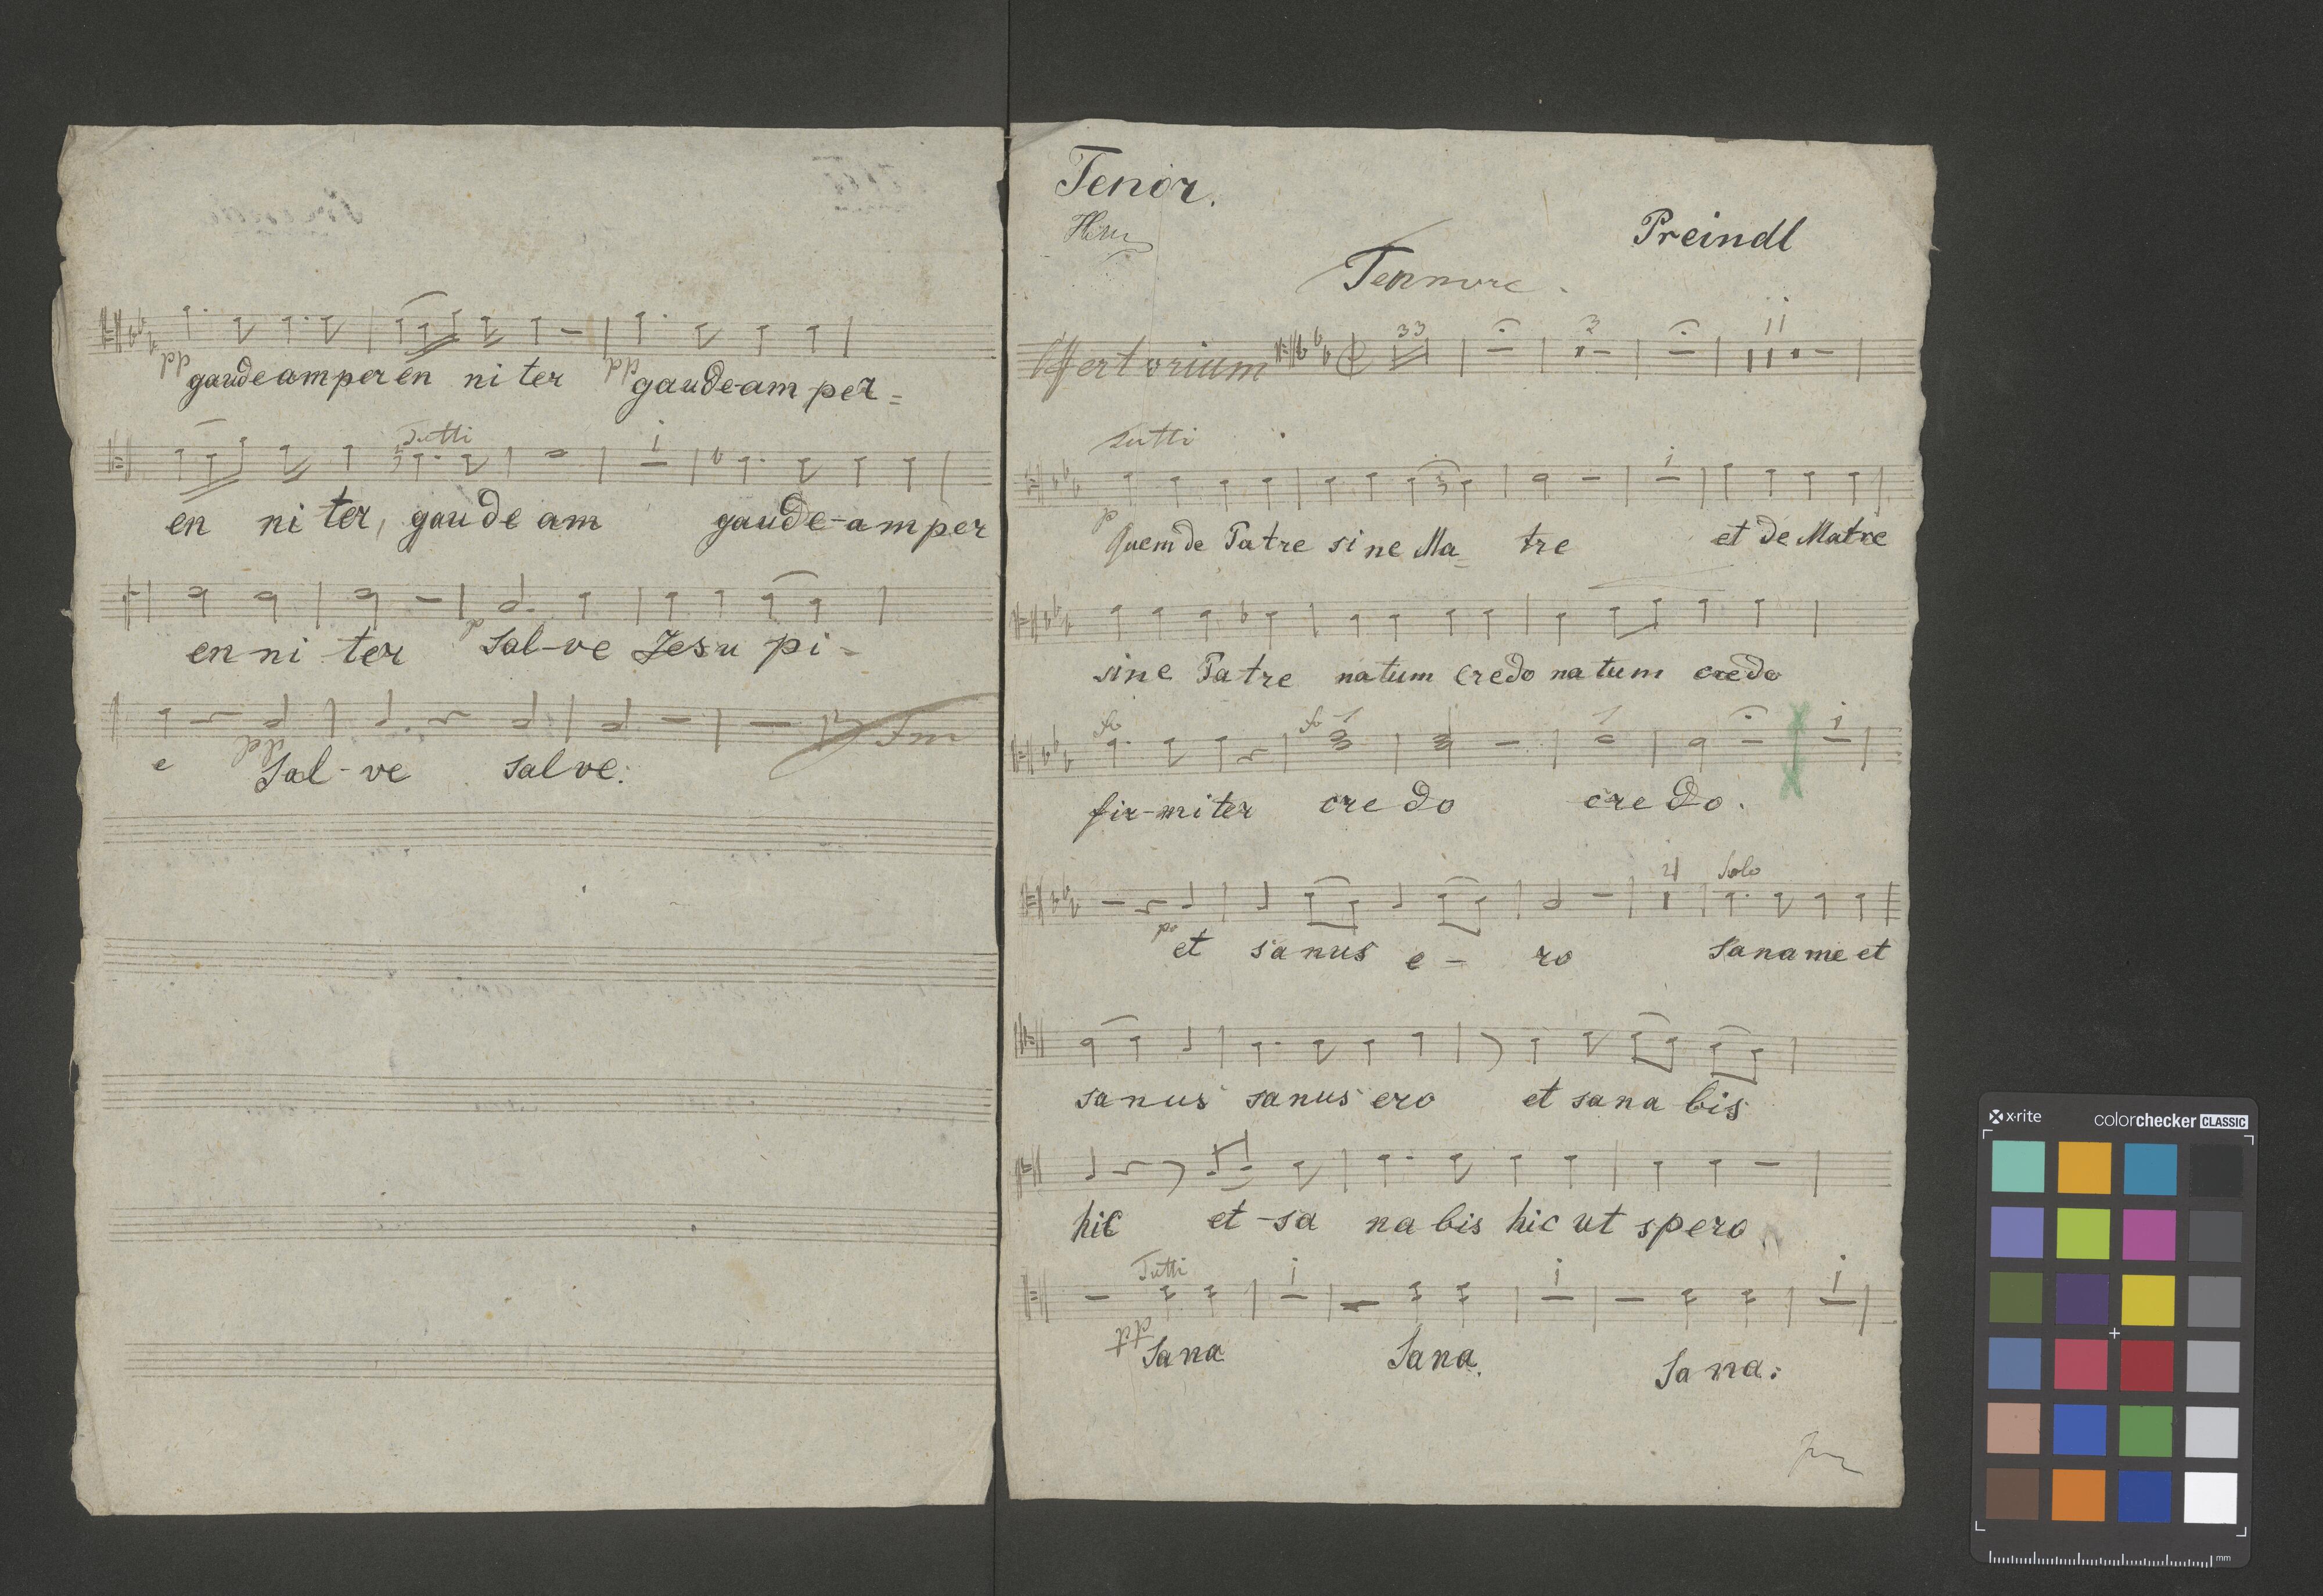 gaudeam per en ni ter gaude-am per=
Tutti
en ni ter, gaude am gaude-am per
en ni ter Sal-ve Jesu pi-
Fin
e Sal-ve salve:
Tenor.
Preindl
Tennore.
Offertorium
33 3 11
Tutti
p
Quem de Patre sine Ma= tre et de Matre
sine Patre natum credo natum credo
fo fo
fir-miter credo credo.
4 Solo
po
et sanus e- ro Sana me et
sanus sanus ero et sana bis
hic et-sa na bis hic ut spero
Tutti
pp
Sana Sana. Sana:
x-rite colorchecker CLASSIC
mm